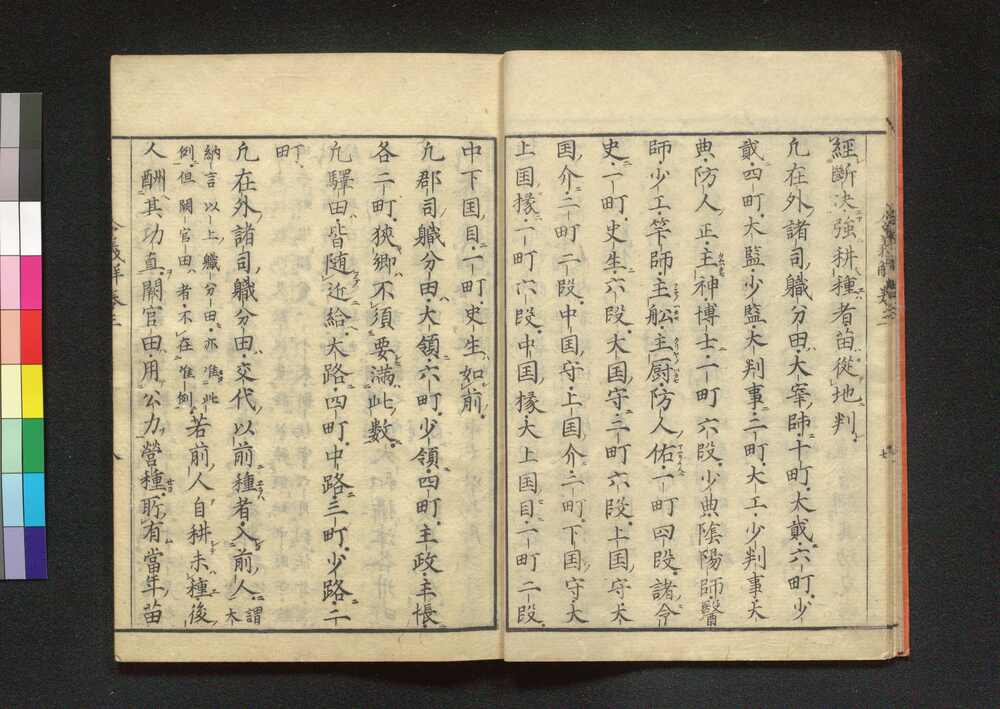 經断決強耕種者苗從地判
凢在外諸司軄分田大宰師十町大貮六町少
貮四町大監少監大判事二町大工少判事大
典防人正主神博士一町六段少典陰陽師醫
師少工竿師主舩主厨防人佑一町四段諸令
史一町史生六段大国守二町六段上国守大
国介二町二段中国守上国介二町下国守大
上国掾一町六段中国掾大上国目一町二段
中下国目一町史生如前
凢郡司軄分田大領六町少領四町主政主帳
各二町狹郷不須要満此數
凢驛田皆随近給大路四町中路三町少路二
町
凢在外諸司軄分田交代以前種者入前人謂大
納言以上軄分田亦准此
例但闕官田者不在准例若前人自耕未種後
人酬其功直闕官田用公力營種所有當年苗